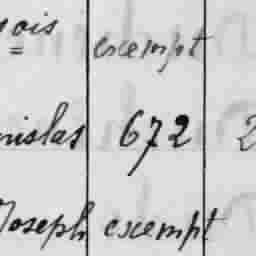 ois exempt
nislas 672 2
Joseph exempt